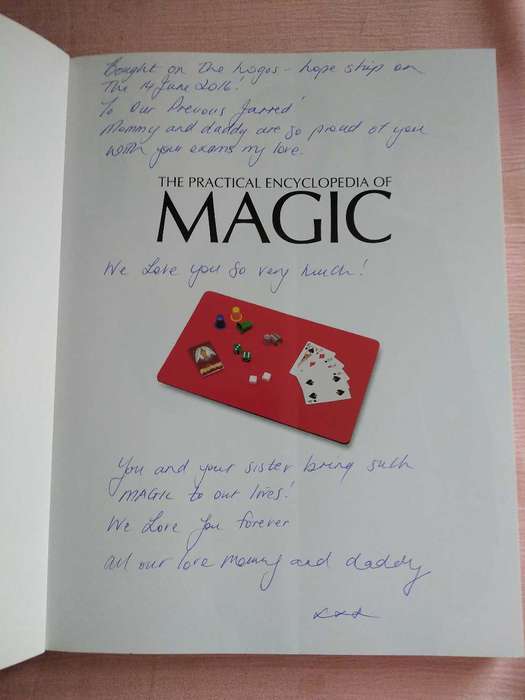 Bought on The Logos-hope ship on
The 14 June 2016!
To Our Precious Jarred!
Mommy and daddy are so proud of you
with your exams my love.
THE PRACTICAL ENCYCLOPEDIA OF
MAGIC
We Love you so very much!
You and your sister bring such
MAGIC to our lives!
We Love You forever
all our love Mommy and daddy
xxx